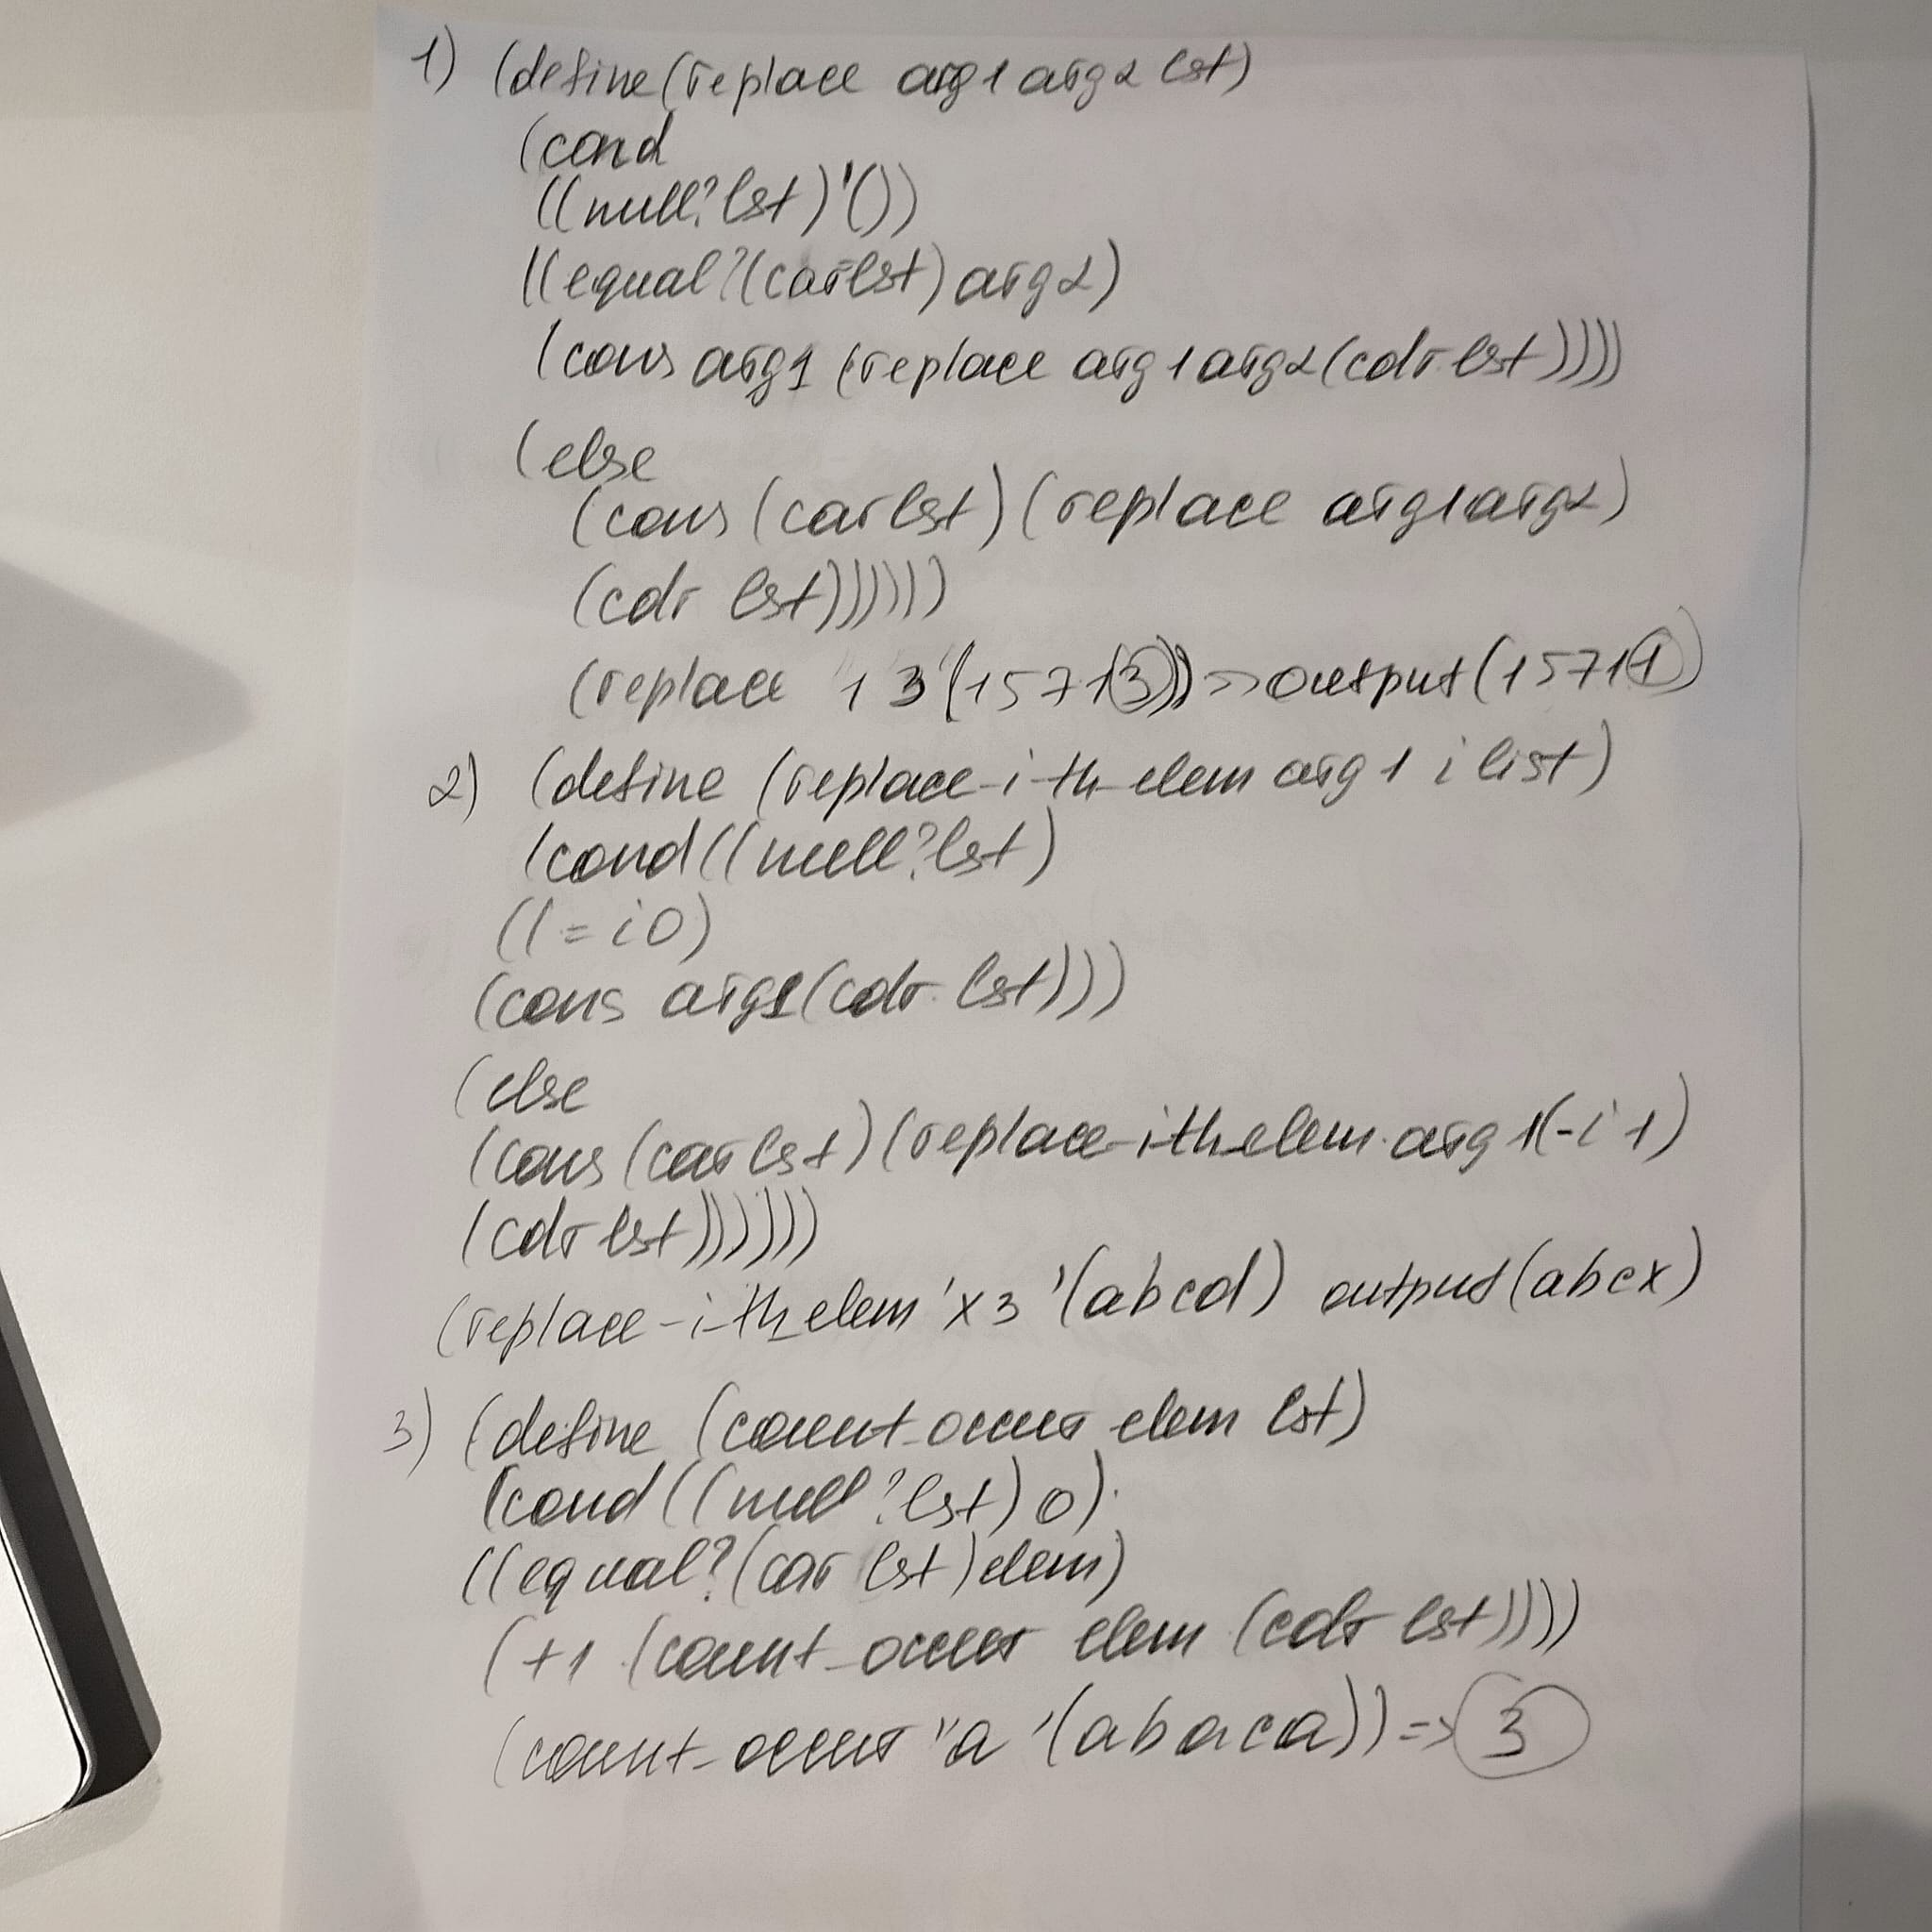 1) (define (replace arg1 arg2 lst)
(cond
((null? lst) '())
((equal? (car lst) arg2)
(cons arg1 (replace arg1 arg2 (cdr lst))))
(else
(cons (car lst) (replace arg1 arg2)
(cdr lst))))))
(replace '1 3 '(1 5 7 1 3)) => output (1 5 7 1 1)
2) (define (replace-i-th-elem arg1 i list)
(cond ((null? lst)
(( = i 0)
(cons arg1 (cdr lst)))
(else
(cons (car lst) (replace-ith_elem arg1 (- i 1)
(cdr lst))))))
(replace-ith_elem 'x 3 '(a b c d) output (a b c x)
3) (define (count_occur elem lst)
(cond ((null? lst) 0)
((equal? (car lst) elem)
(+1 (count_occur elem (cdr lst))))
(count_occur "a '(a b a c a)) => 3